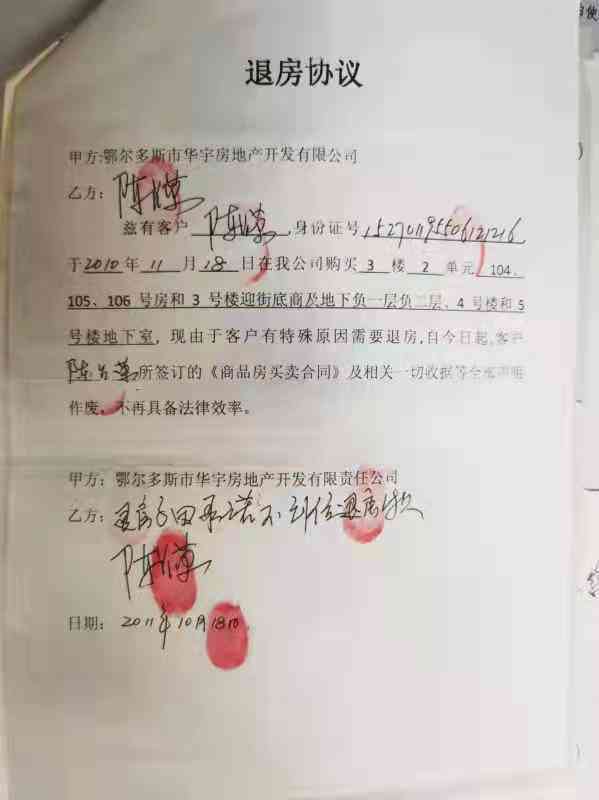 退房协议
甲方:鄂尔多斯市华宇房地产开发有限公司
乙方：陈
兹有客户 陈 ,身份证号
于2010年 11 月 18 日在我公司购买 3 楼 2 单元 104、
105、106 号房和 3 号楼迎街底商及地下负一层负二层、4 号楼和 5
号楼地下室，现由于客户有特殊原因需要退房,自今日起,客户
陈 所签订的《商品房买卖合同》及相关一切收据等全部声明
作废，不再具备法律效率。
甲方：鄂尔多斯市华宇房地产开发有限责任公司
乙方：
陈
日期： 2011年10月18日